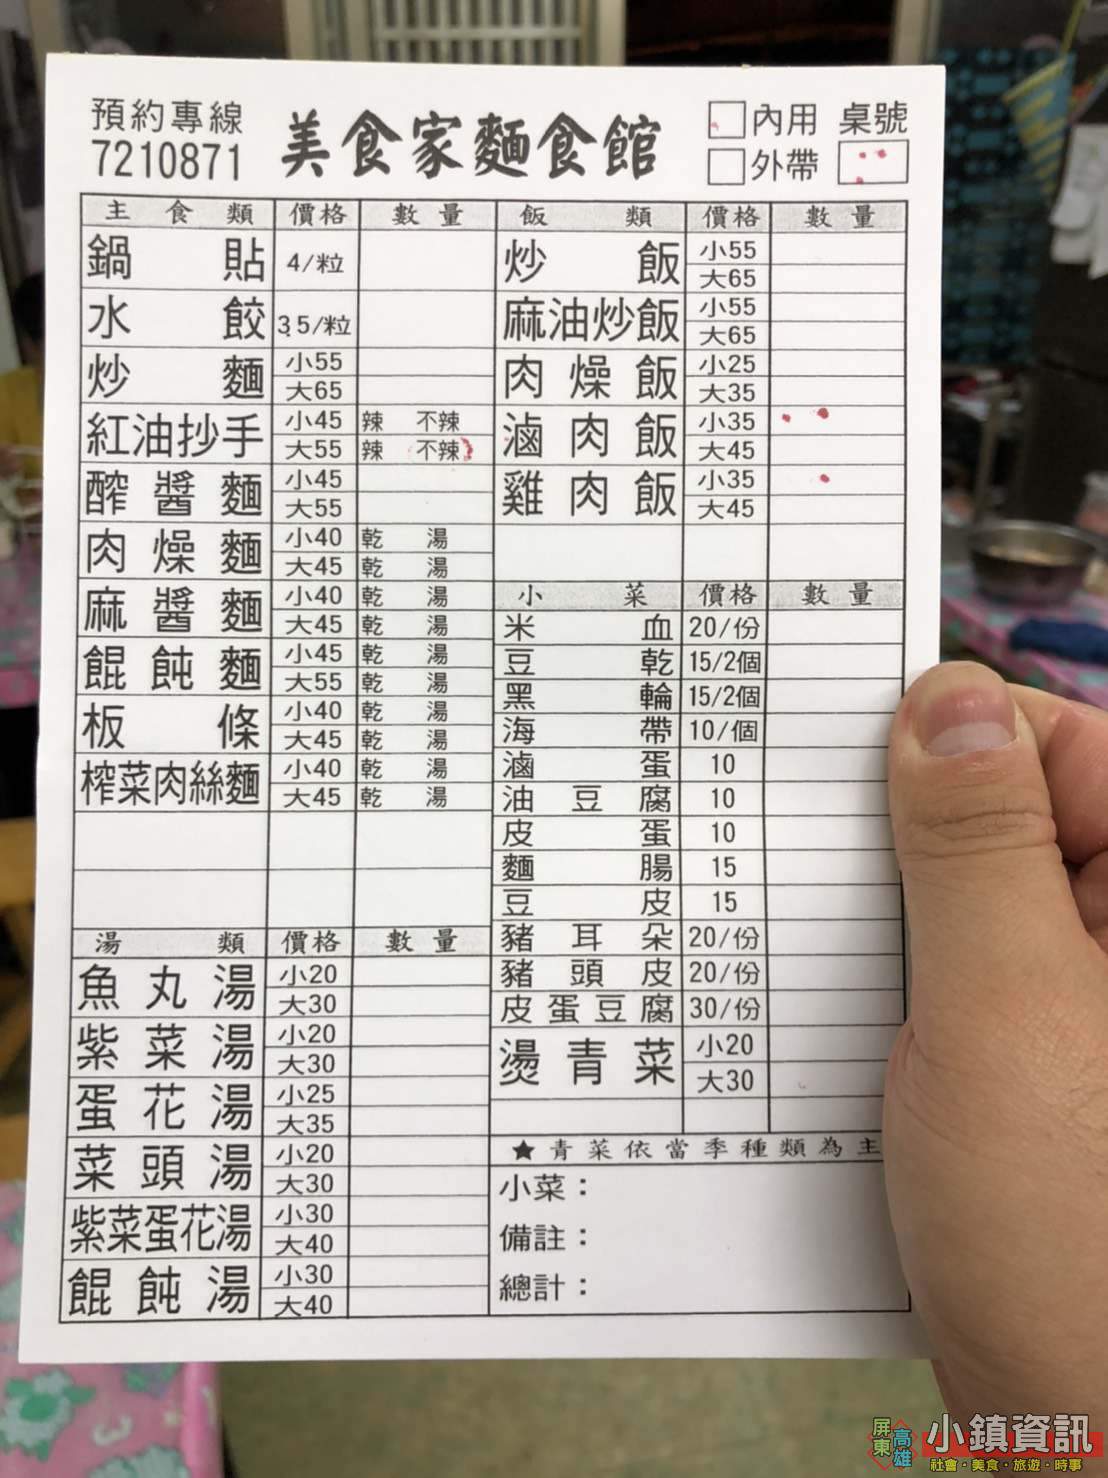 預約專線
7210871
美食家麵食館
內用 桌號
外帶
主食類 價格 數量
鍋貼 4/粒
水餃 3.5/粒
炒麵 小55
大65
紅油抄手 小45 辣 不辣
大55 辣 不辣
醡醬麵 小45
大55
肉燥麵 小40 乾 湯
大45 乾 湯
麻醬麵 小40 乾 湯
大45 乾 湯
餛飩麵 小45 乾 湯
大55 乾 湯
板條 小40 乾 湯
大45 乾 湯
榨菜肉絲麵 小40 乾 湯
大45 乾 湯
湯類 價格 數量
魚丸湯 小20
大30
紫菜湯 小20
大30
蛋花湯 小25
大35
菜頭湯 小20
大30
紫菜蛋花湯 小30
大40
餛飩湯 小30
大40
飯類 價格 數量
炒飯 小55
大65
麻油炒飯 小55
大65
肉燥飯 小25
大35
滷肉飯 小35
大45
雞肉飯 小35
大45
小菜 價格 數量
米血 20/份
豆乾 15/2個
黑輪 15/2個
海帶 10/個
滷蛋 10
油豆腐 10
皮蛋 10
麵腸 15
豆皮 15
豬耳朵 20/份
豬頭皮 20/份
皮蛋豆腐 30/份
燙青菜 小20
大30
★青菜依當季種類為主
小菜：
備註：
總計：
屏東 高雄 小鎮資訊
社會·美食·旅遊·時事